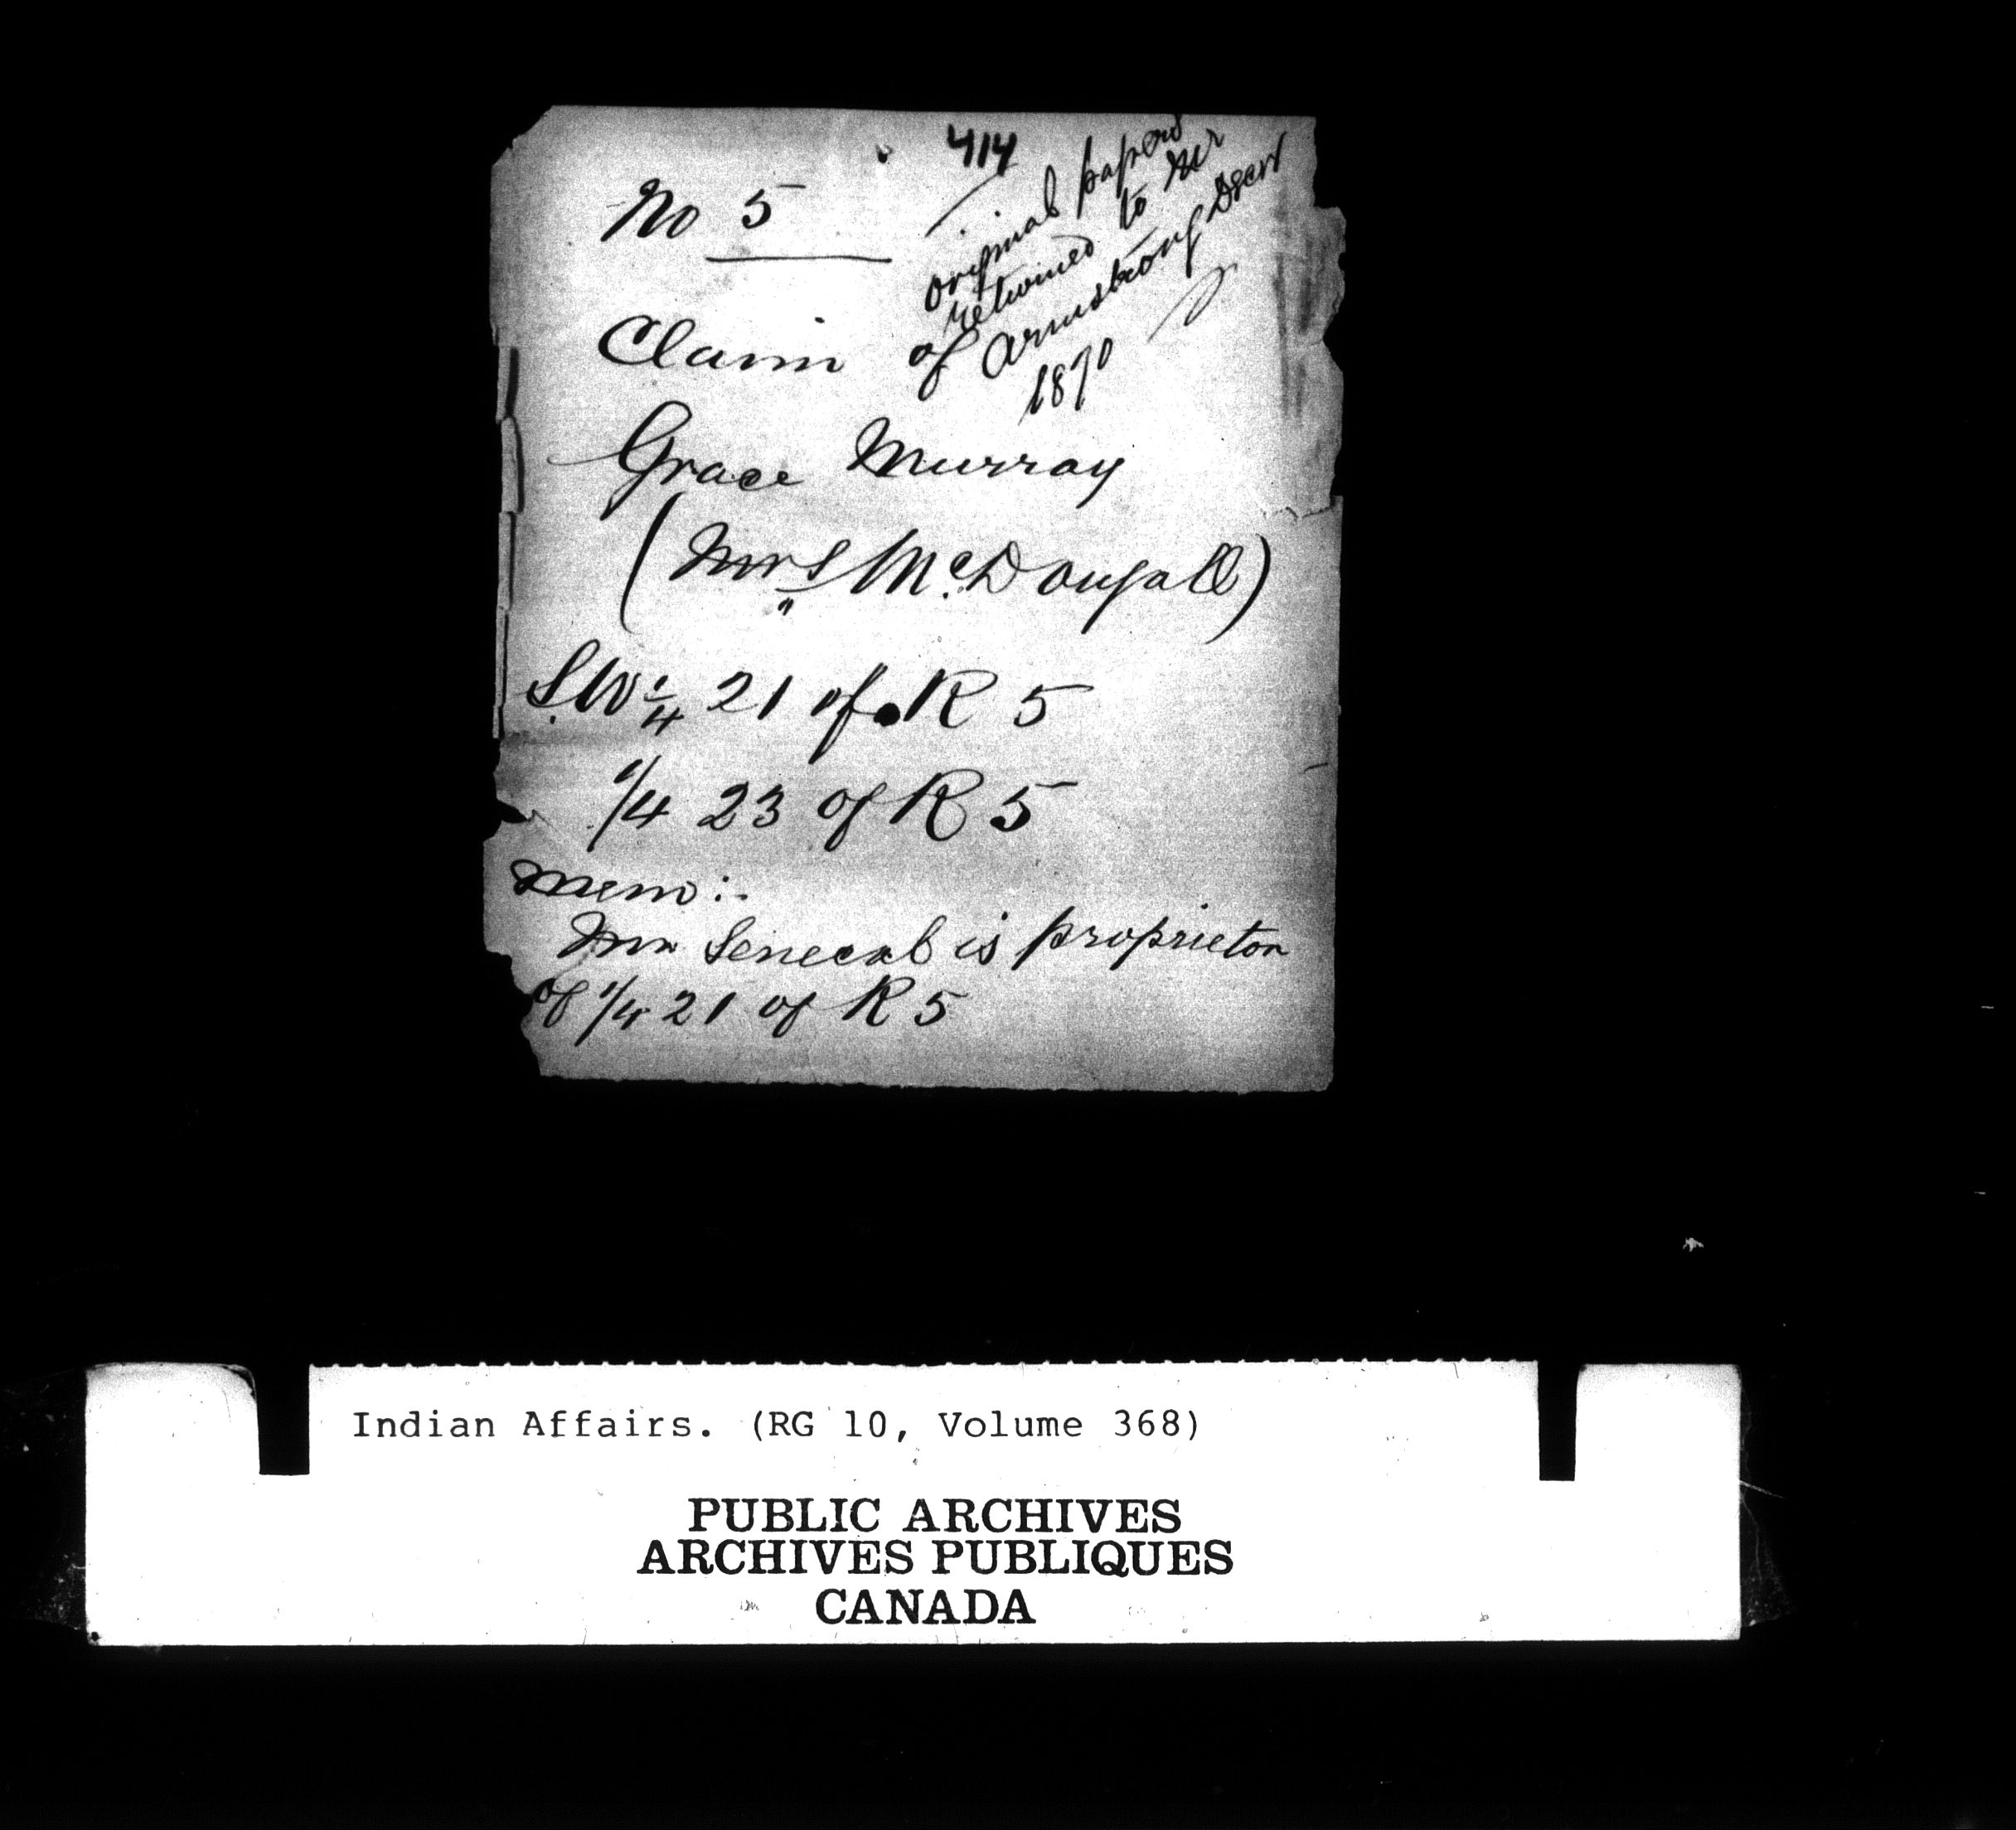 414
No 5
original papers
returned to Mr
Armstrong Decr
1870
Claim of
Grace Murray
(Mrs McDougall)
S.W 1/4 21 of R 5
1/4 23 of R 5
Mem:-
Mr Senecal is proprietor
of 1/4 21 of R 5
Indian Affairs. (RG 10, Volume 368)
PUBLIC ARCHIVES
ARCHIVES PUBLIQUES
CANADA